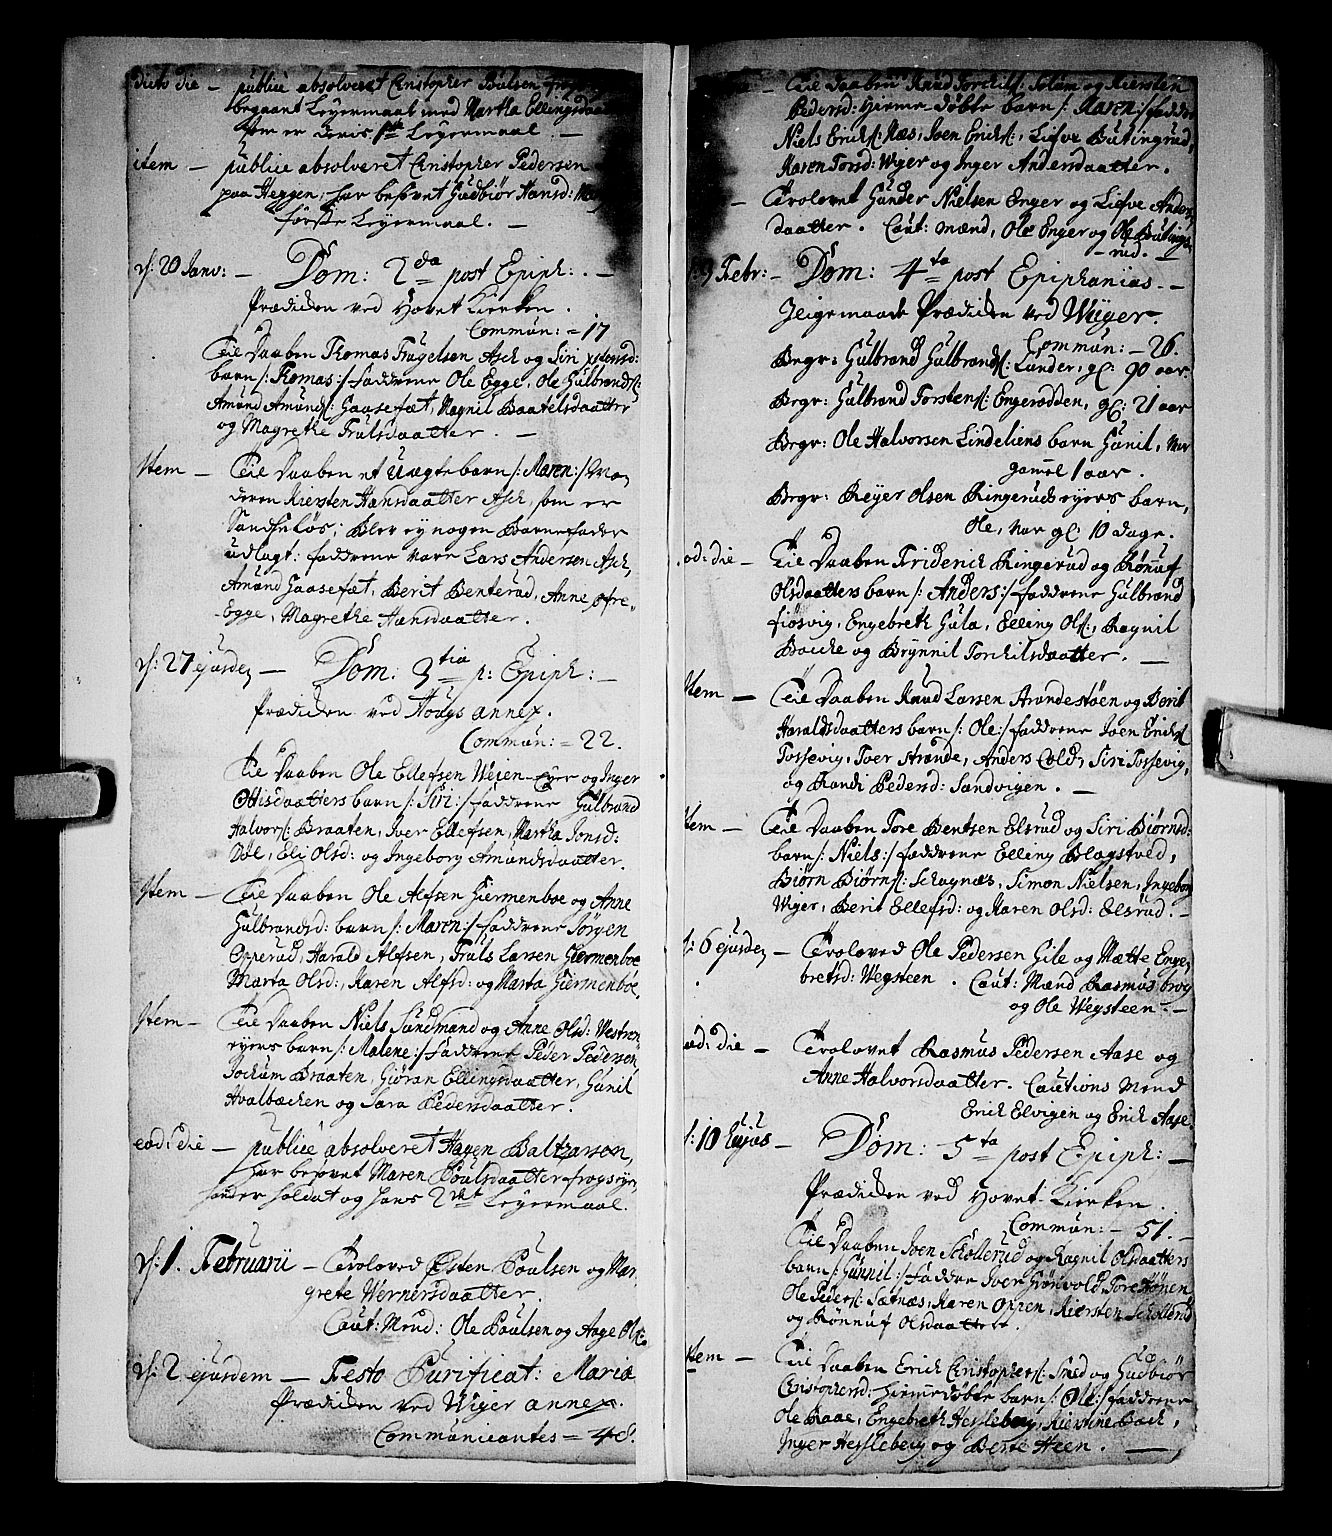 dicto die – publice absolveret Christopher Poulsen
begaaet Leyermaal med Martha Ellingsdaatter
som er deris 1ste Leyermaal. –
item – publice absolveret Christopher Pedersen
paa Heggen, har besovet Gudbiør Hansd:
første Leyermaal. –
d/: 20 Janv: – Dom: 2da post Epiph: . –
Prædiken ved Hovet Kierken .
Commun: = 17
Till Daaben Thomas Trugelsen Asch og Siri Xstensd:
barn /: Thomas :/ faddrene Ole Egge, Ole Gulbrands:
Amund Amunds: Haasefæt, Magnil Baatelsdaatter
og Magrethe Trulsdaatter . –
Item – Till Daaben et Uægte barn /: Maren :/ Mo-
deren Kiersten Hansdaatter Asch, som er
Sandsæløs; Blev ey nogen Barnefader
udlagt: faddrene vare Lars Andersen Asch,
Amund Haasefæt, Berit Benterud, Anne øfre-
Egge, Magrethe Hansdaatter.
d/: 27 ejusdem – Dom: 3tia p: Epiph: –
Prædiken ved Hougs annex.
Commun: = 22.
Till Daaben Ole Ellefsen Weien eyer og Inger
Ottisdaatters barn /: Siri :/ faddrene Gulbrand
Halvors: Braaten, Iver Ellefsen, Martha Jonsd:
Døl, Eli Olsd: og Ingeborg Amundsdaatter.
Item – Till Daaben Ole Alfsen Giermenboe og Anne
Gulbrandsd: barn /: Maren :/ faddrene Jørgen
Opperud, Harald Alfsen, Truls Larsen Giermenboe
Marta Olsd:, Karen Alfsd: og Marta Giermenboe,
Item – Till Daaben Niels Sundmand og Anne Olsd: Westren
eyers barn /: Malene :/ faddrene Peder Pedersen
Jochum Braaten, Giøran Ellingsdaatter, Gunil
Hvalbæcken og Sara Pedersdaatter.
eod: die – publice absolveret Hagen Baltzarsen,
har besovet Maren Poulsdaatter frogsøy,
hand er soldat og hans 2det Leyermaal.
d/: 1. Februarii – Troloved Østen Poulsen og Mar-
grete Wernersdaatter.
Caut: Mend: Ole Poulsen og Aage Ols:
d/: 2 ejusdem – Festo Purificat: Mariæ
Prædiken ved Wiger annex.
Communicantes = 48.
Till Daaben Knud Torchilds: Solum og Kiersten
Pedersd: hiemedøbte barn /: Maren :/ faddr:
Niels Erichs: Næs, Joen Erichs:, Lisve Butingrud,
Karen Torsd: Wiger og Inger Andersdaatter.
– Trolovet Gunder Nielsen Enger og Lisve Anders-
daatter . Caut: mænd, Ole Enger og Ole Butings
– rud. –
d: 3 Febr: – Dom: 4ta post Epiphanias . –
Ligemaade Prædiken ved Wiiger.
Commun: – 26.
Begr: Gulbrand Gulbrands: Lunder, gl: 90 aar.
Begr: Gulbrand Torstens: Engerodden, gl: 21 aar
Begr: Ole Halvorsen Lindeliens barn Gunil, var
gamel 1 aar .
Begr: Reyer Olsen Ringeruds eyers barn,
Ole, var gl: 10 dage.
eod: die – Till Daaben Friderich Ringerud og Rønnuf
Olsdaatters barn /: Anders :/ faddrene Gulbrand
fiøsvig, Engebreth Hula, Elling Ols:, Ragnil
Bache og Brynnil Torchilsdaatter. –
Item – Till Daaben Knud Larsen Strandestøen og Berit
Haraldsdaatters barn /: Ole :/ faddrene Joen Erichs:
Tossevig, Toer Strande, Anders Cold, Siri Tossevig,
og Randi Pedersd: Sandvigen . –
Item – Till Daaben Tore Bentsen Elsrud og Siri Biørnsd:
barn /: Niels :/ faddrene Elling Blagstved,
Biørn Biørns: Schagnæs, Simon Nielsen, Ingeborg
Wiger, Berit Ellefsd: og Karen Olsd: Elsrud. –
d: 6 ejusdem – Troloved Ole Pedersen Gile og Mætte Enge-
bretsd: Wegsteen . Caut: Mænd Rasmus brog
og Ole Wegsteen. –
eod: die – Trolovet Rasmus Pedersen Aase og
Anne Halvorsdaatter. Cautions Mend
Erich Elvigen og Erich Aase.
d: 10 Hujus – Dom: 5ta post Epiph: –
Prædiken ved Hovet-Kierken .
Commun: – 51. –
Till Daaben Joen Schollerud og Ragnil Olsdaatters
barn /: Gunnil :/ faddre Iver Grønvold, Tore Hønen
Ole Peders: Sætnæs, Karen Oppen, Kiersten Schollerud
og Rønnuf Olsdaatter.
Item – Till Daaben Erich Christophers: Smed og Gudbiør
Christophersd: hiemedøbte barn /: Ole :/ faddrene
Ole Raae, Engebreth Hesleberg, Kierstine Bach,
Inger Hesleberg og Berte Heen . –